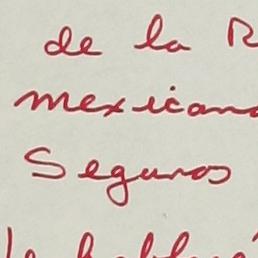 de la R
mexicana
Seguros